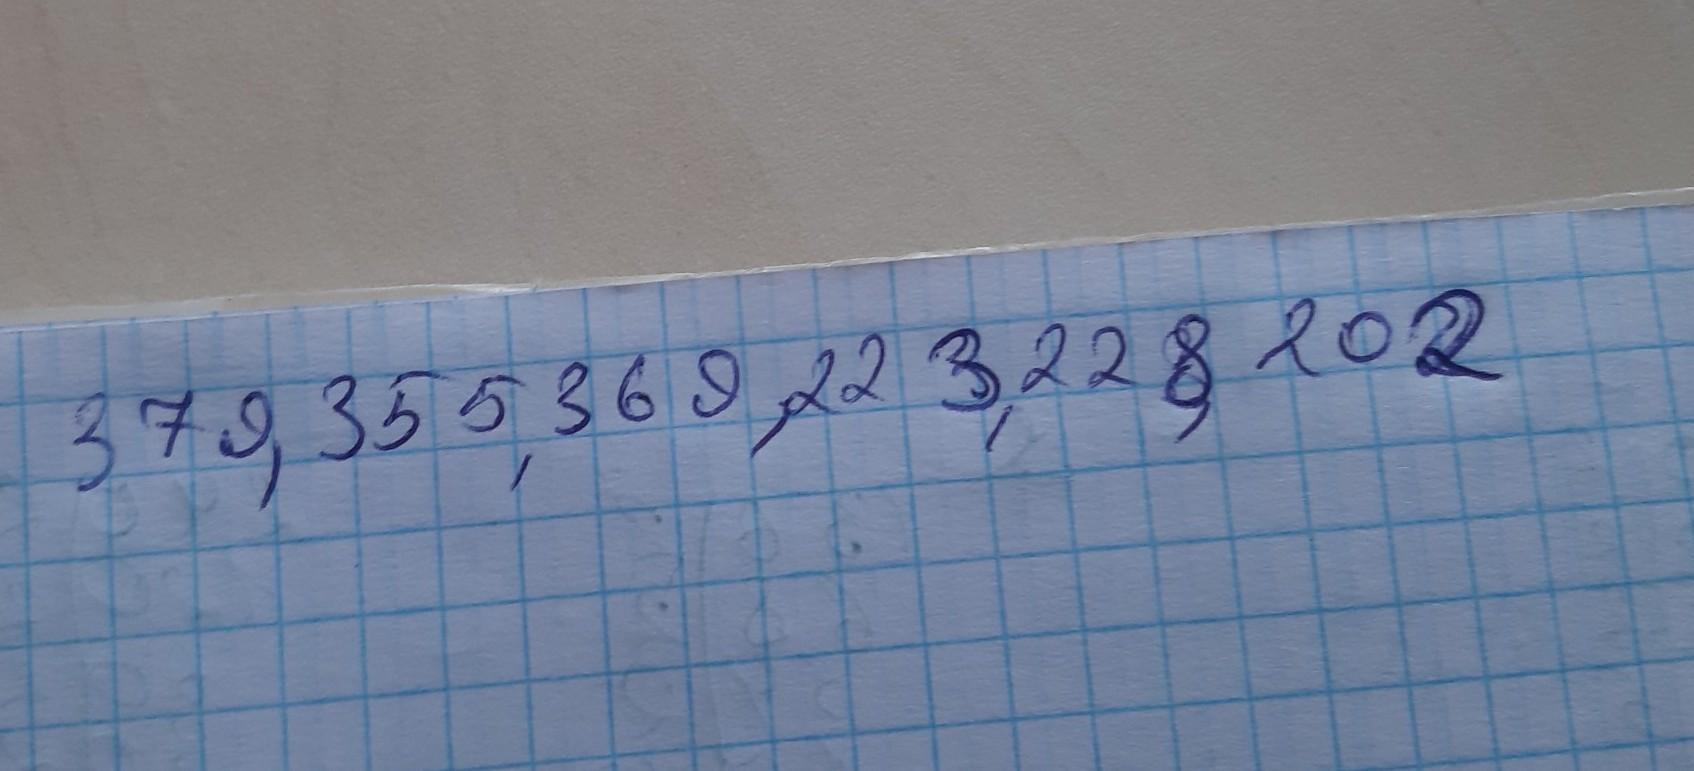 379, 355, 369, 223, 228, 202